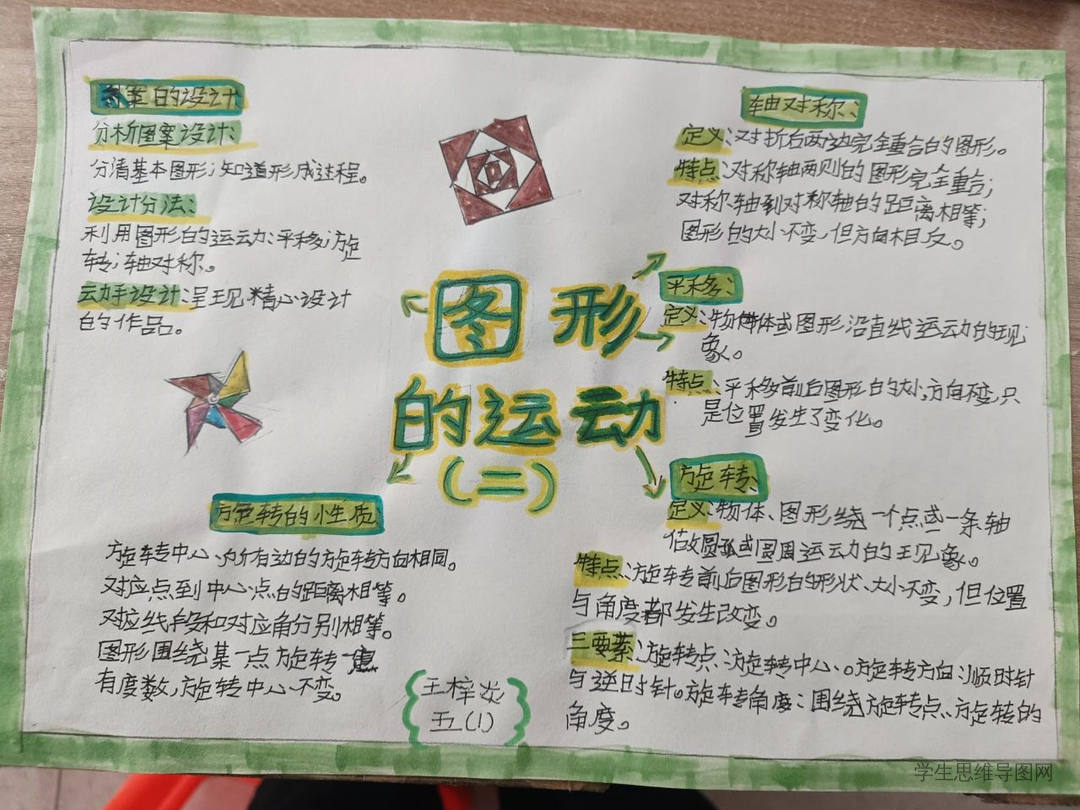 图案的设计
分析图案设计：
分清基本图形；知道形成过程。
设计分法：
利用图形的运动：平移；旋
转；轴对称。
动手设计：呈现精心设计
的作品。
轴对称：
定义：对折后两边完全重合的图形。
特点：对称轴两则的图形完全重合；
对称轴到对称轴的距离相等；
图形的大小不变，但方向相反。
图形
的运动
（二）
平移：
定义：物体或图形沿直线运动的现
象。
特点：平移前后图形的大小，方向不变，只
是位置发生了变化。
旋转：
定义：物体、图形绕一个点或一条轴
做圆弧或圆周运动的现象。
特点：旋转前后图形的形状、大小不变，但位置
与角度都发生改变。
三要素：旋转点：旋转中心。旋转方向：顺时针
与逆时针。旋转角度：围绕旋转点、旋转的
角度。
旋转的性质
旋转中心：所有边的旋转方向相同。
对应点到中心点的距离相等。
对应线段和对应角分别相等。
图形围绕某一点旋转
有度数，旋转中心不变。
王梓炎
五（1）
学生思维导图网